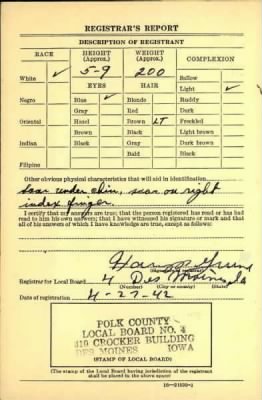 REGISTRAR'S REPORT
DESCRIPTION OF REGISTRANT
RACE HEIGHT (Approx.) WEIGHT (Approx.) COMPLEXION
5-9 200
White ✓ Sallow
EYES HAIR Light ✓
Negro Blue ✓ Blonde Ruddy
Gray Red Dark
Oriental Hazel Brown LT Freckled
Brown Black Light brown
Indian Black Gray Dark brown
Bald Black
Filipino
Other obvious physical characteristics that will aid in identification
Scar under chin, scar on right
index finger.
I certify that my answers are true; that the person registered has read or has had
read to him his own answers; that I have witnessed his signature or mark and that
all of his answers of which I have knowledge are true, except as follows:
Registrar for Local Board 4 Des Moines
(Number) (City or county) (State)
Date of registration 4-27-42
POLK COUNTY
LOCAL BOARD NO. 4
419 CROCKER BUILDING
DES MOINES IOWA
(STAMP OF LOCAL BOARD)
(The stamp of the Local Board having jurisdiction of the registrant
shall be placed in the above space.)
16-21630-1